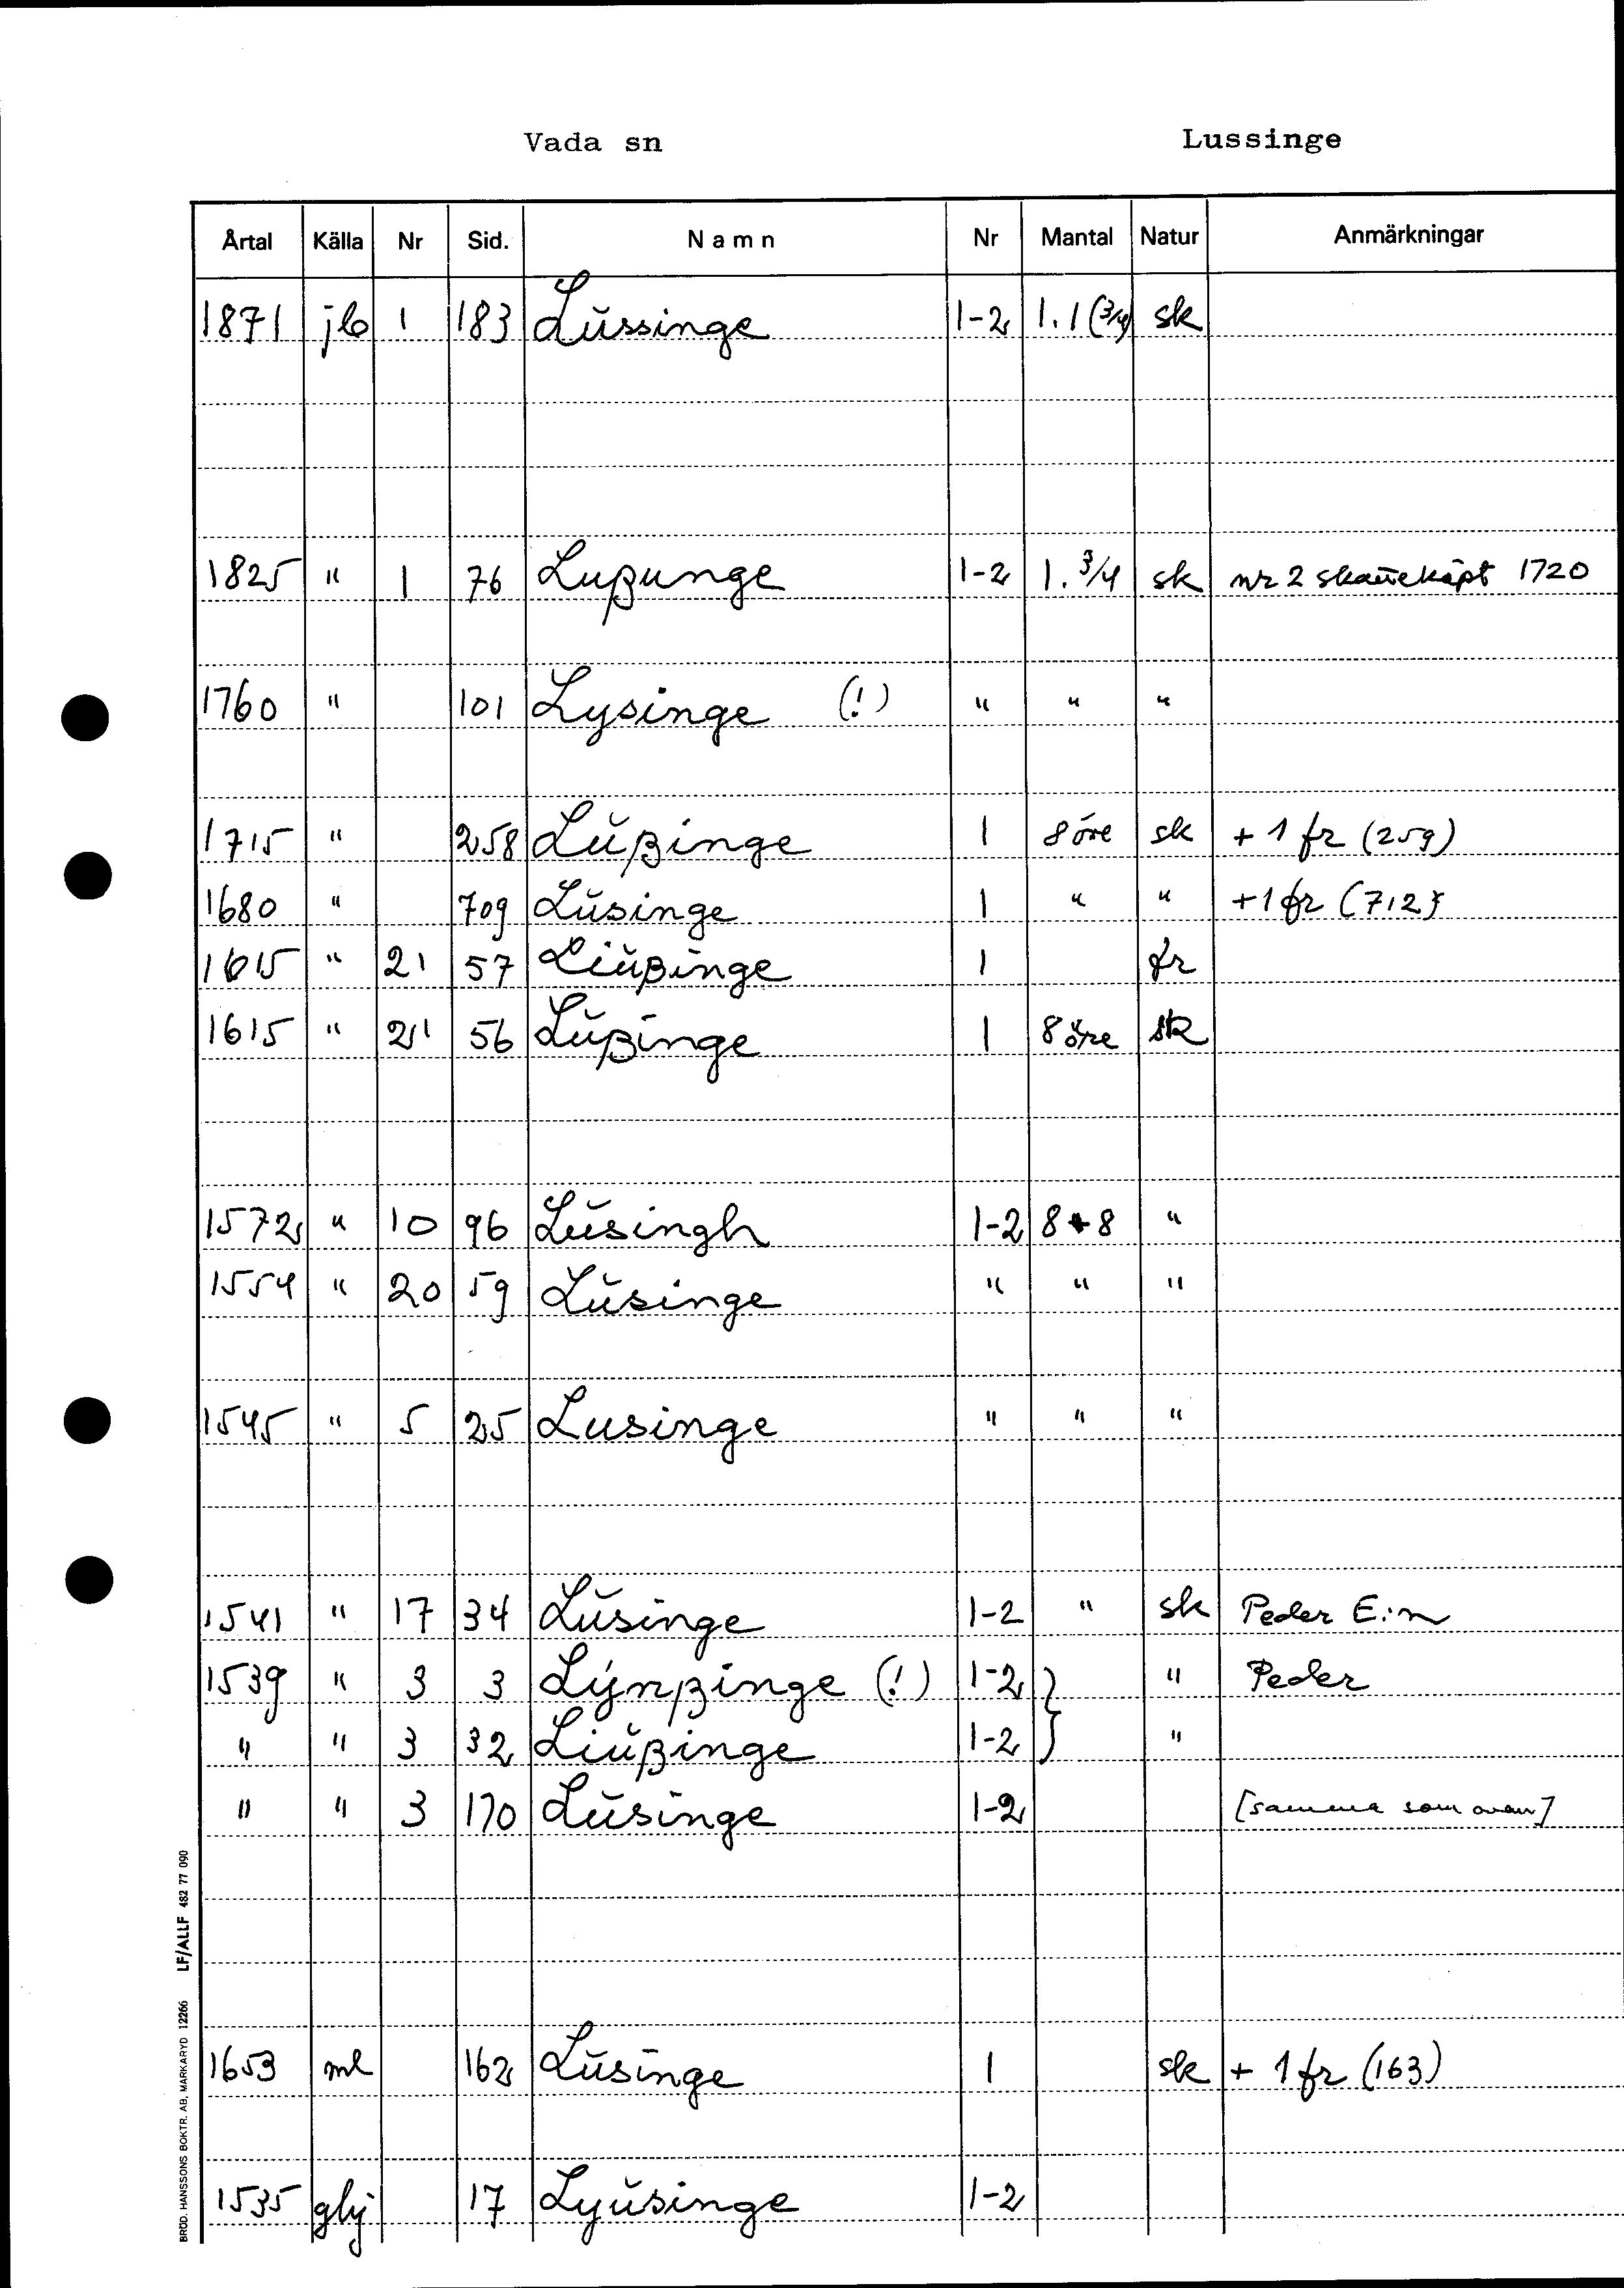 Vada sn Lussinge
Årtal Källa Nr Sid. Namn Nr Mantal Natur Anmärkningar
1871 jb 1 183 Lŭssinge 1-2 1.1 (3/4) sk
1825 " 1 76 Lußunge 1-2 1. 3/4 sk nr 2 skatteköpt 1720
1760 " 101 Lysinge (!) " " "
1715 " 258 Lŭßinge 1 8 öre sk + 1 fr (259)
1680 " 709 Lŭsinge 1 " " +1 fr (712)
1615 " 21 57 Liŭßinge 1 fr
1615 " 21 56 Lŭßinge 1 8 öre sk
1572 " 10 96 Lŭsingh 1-2 8+8 "
1554 " 20 59 Lŭsinge " " "
1545 " 5 25 Lusinge " " "
1541 " 17 34 Lŭsinge 1-2 " sk Peder E:n
1539 " 3 3 Lýnßinge (!) 1-2 } " Peder
" " 3 32 Liŭßinge 1-2 } "
" " 3 170 Lŭsinge 1-2 [samma som ovan]
1653 ml 162 Lŭsinge 1 sk + 1 fr (163)
1535 ghj 17 Lyŭsinge 1-2
BRÖD. HANSSONS BOKTR. AB, MARKARYD 12266 LF/ALLF 482 77 090